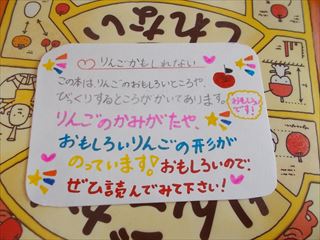 れない
りんごかもしれない
この本は、りんごのおもしろいところや、
びっくりするところがかいてあります。
おもしろい
りんごのかみがたや、
おもしろいりんごの形が
のっています!おもしろいので
ぜひ読んでみて下さい!